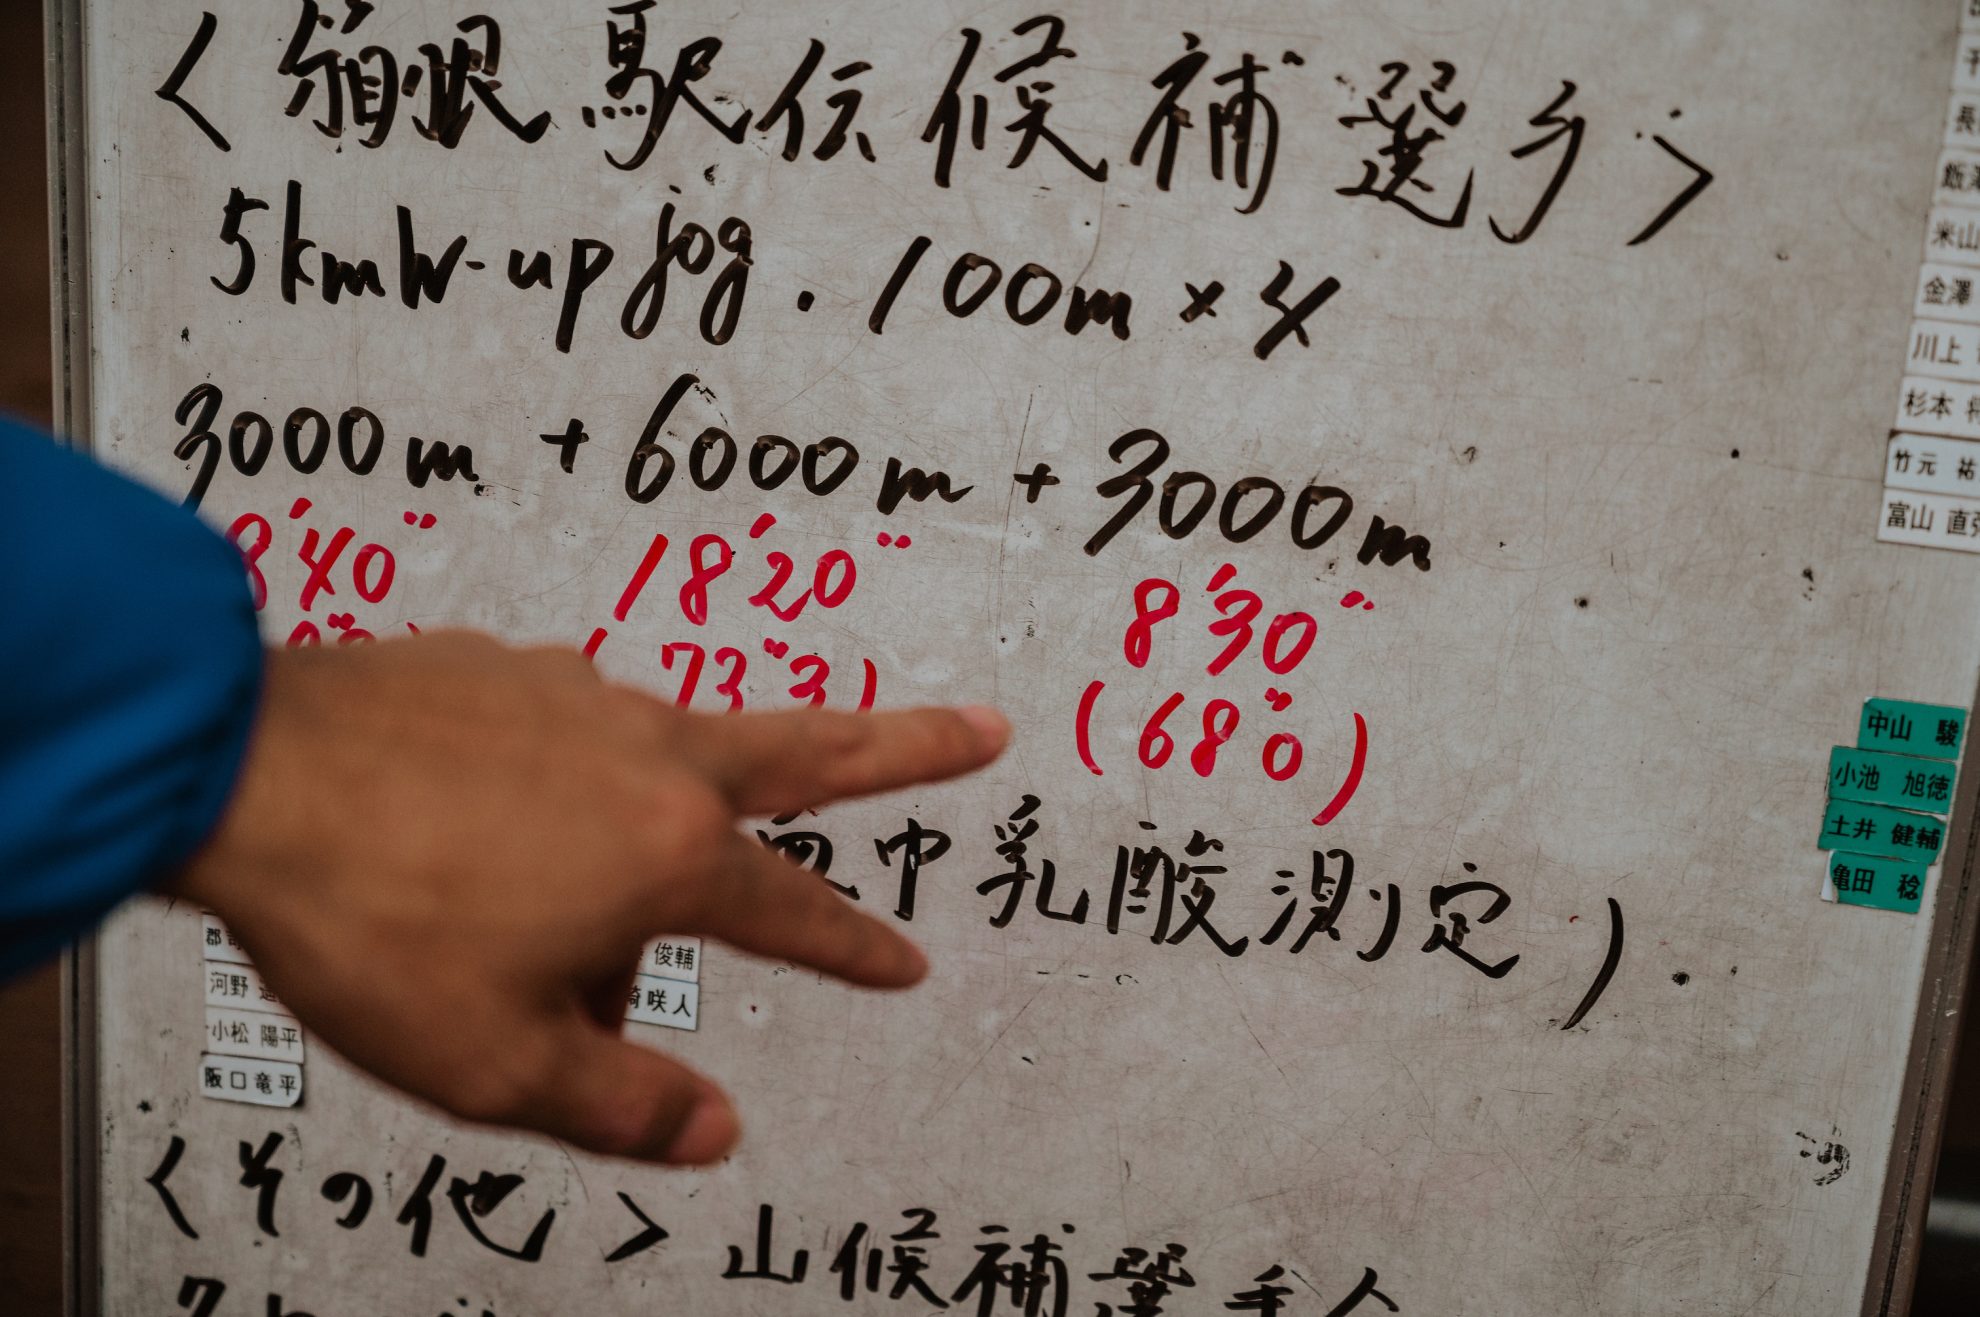 〈箱根駅伝候補選手〉
5kmW-up jog. 100m×4
3000m + 6000m + 3000m
8'40" 18'20" 8'30"
(73"3) (68"0)
血中乳酸測定).
〈その他〉山候補選手
米山
金澤
川上
杉本
竹元 祐
富山 直
中山 駿
小池 旭徳
土井 健輔
亀田 稔
俊輔
河野
咲人
小松 陽平
阪口竜平